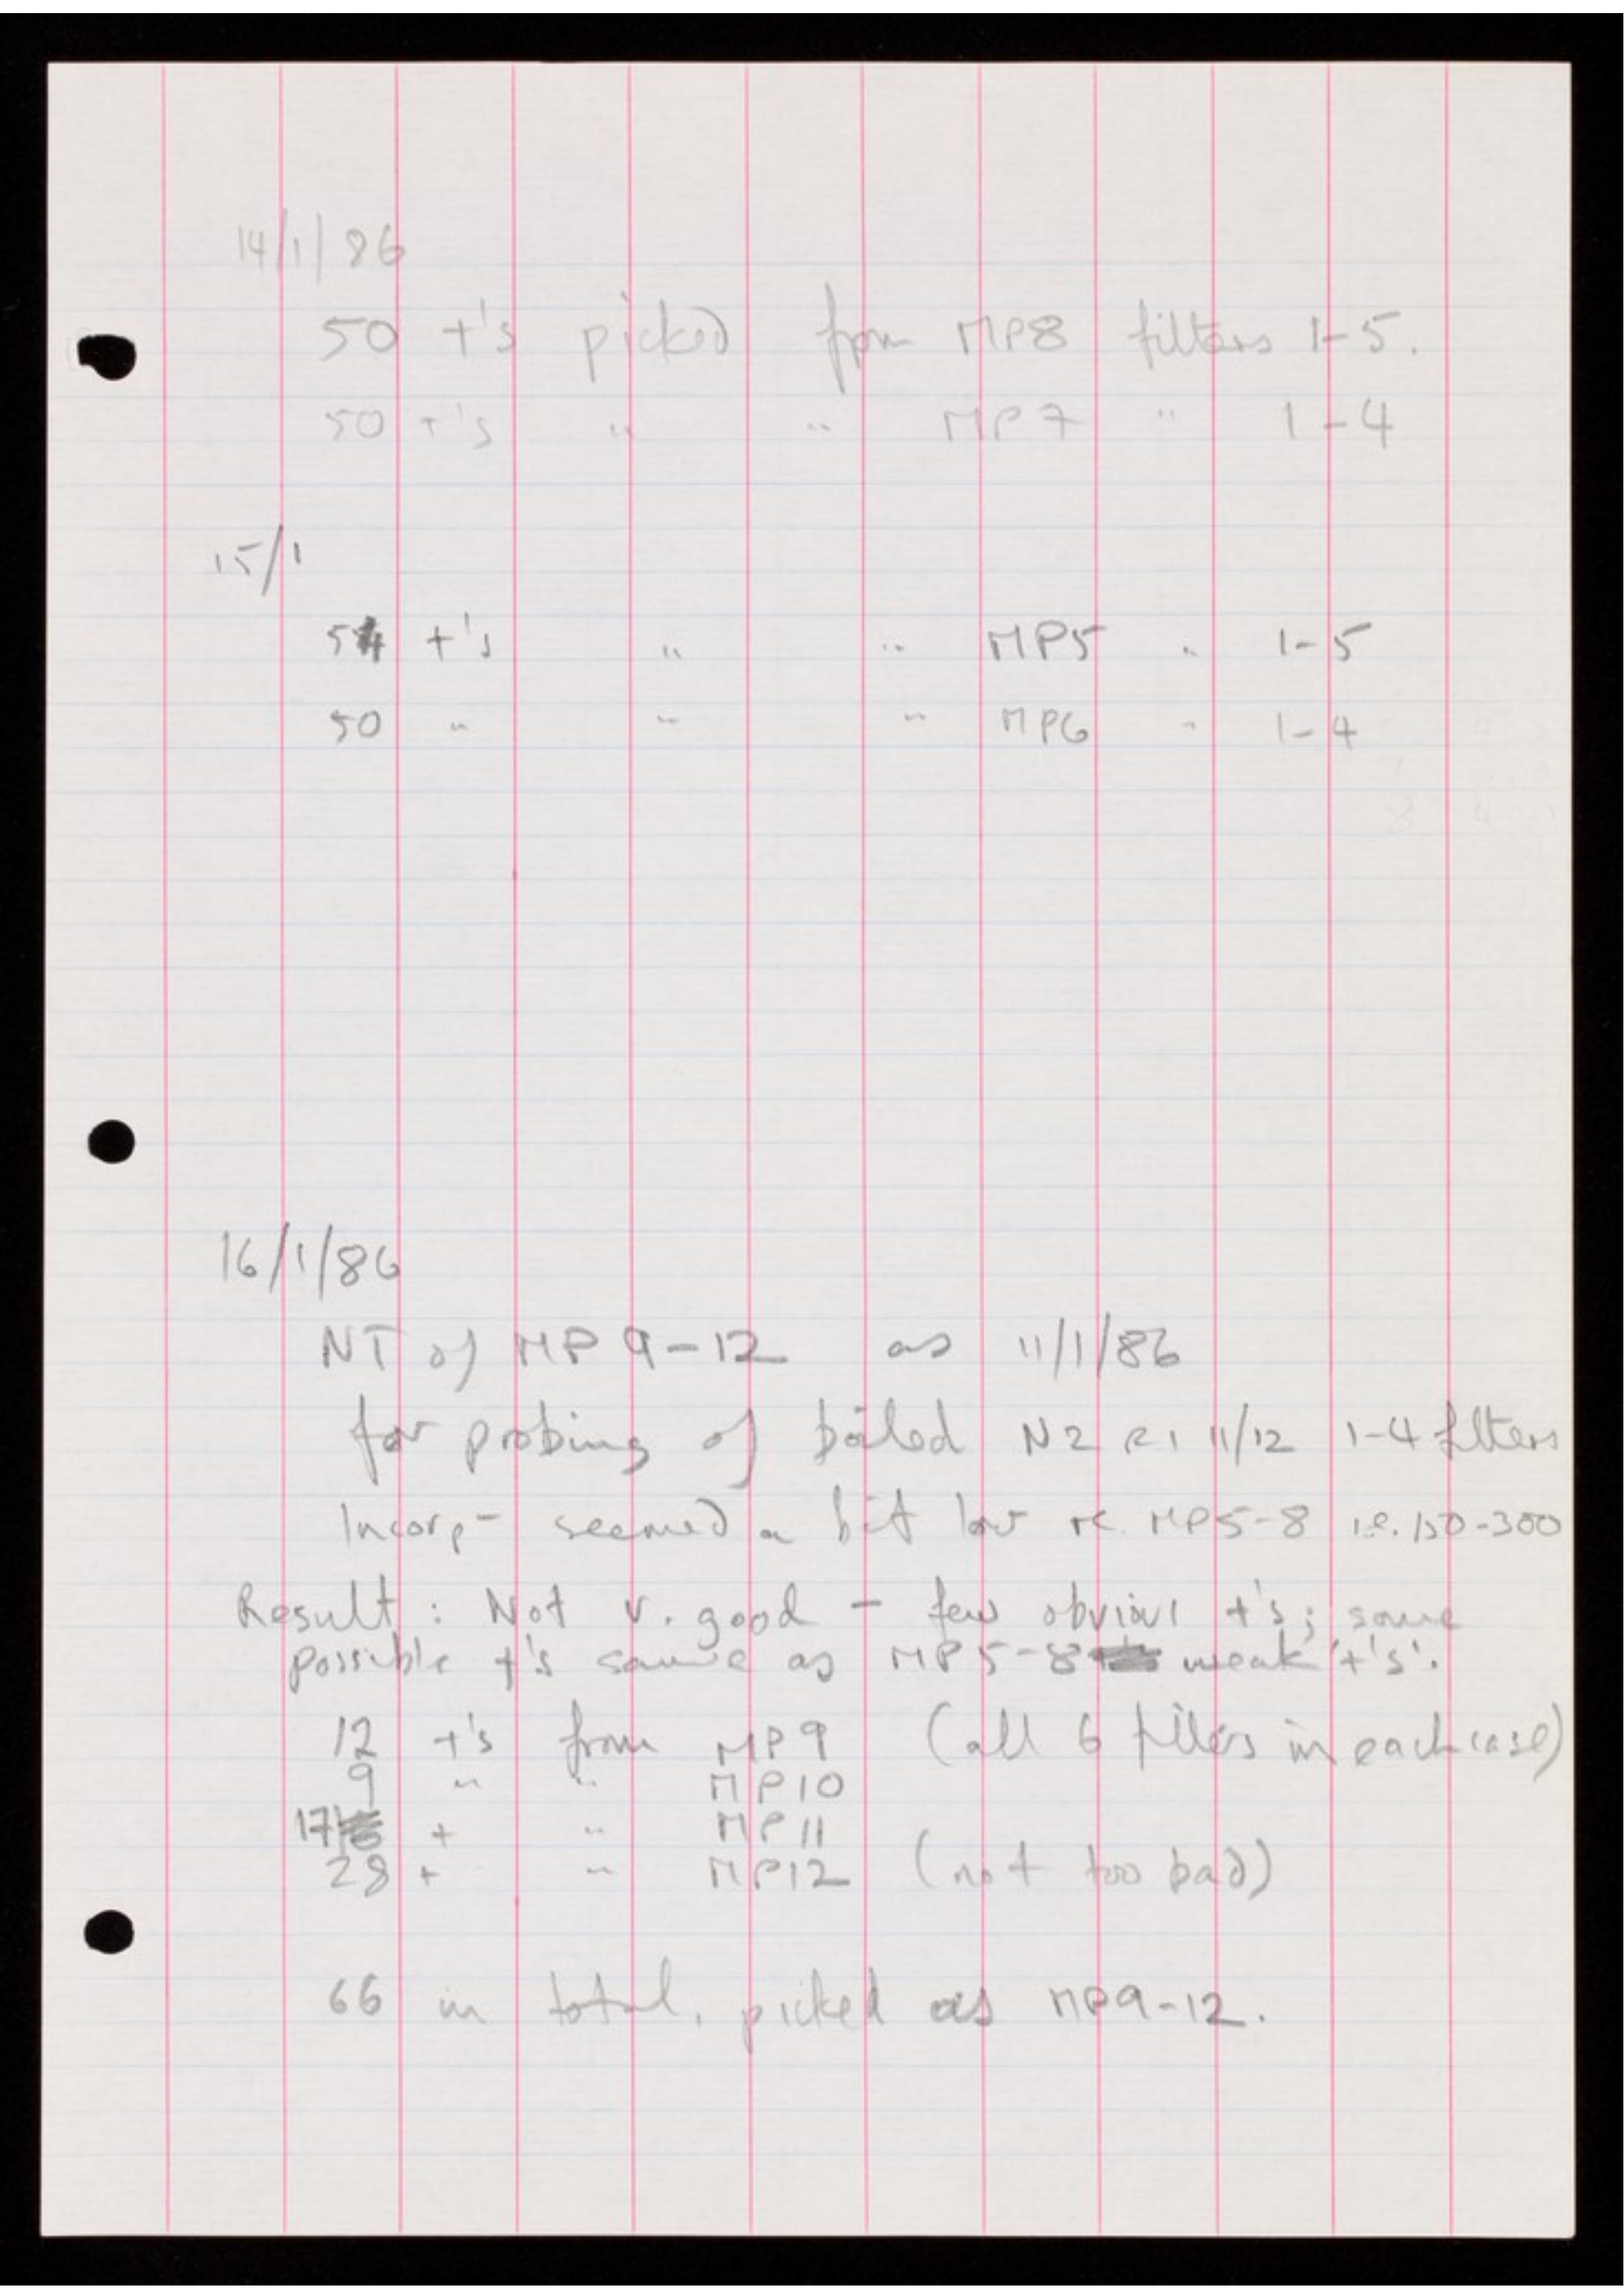 14/1/86
50 +'s picked from MP8 filters 1-5.
50 +'s " " MP7 " 1-4
15/1
54 +'s " " MP5 " 1-5
50 " " " MP6 " 1-4
16/1/86
NT of MP 9-12 as 11/1/86
for probing of boiled N2 R1 11/12 1-4 filters
Incorp- seemed a bit low re. MP5-8 i.e. 150-300
Result: Not v. good - few obvious +'s; some
possible +'s same as MP5-8 weak '+'s'.
12 +'s from MP9 (all 6 filters in each case)
9 " " MP10
17 + " MP11
28 + " MP12 (not too bad)
66 in total, picked as MP9-12.